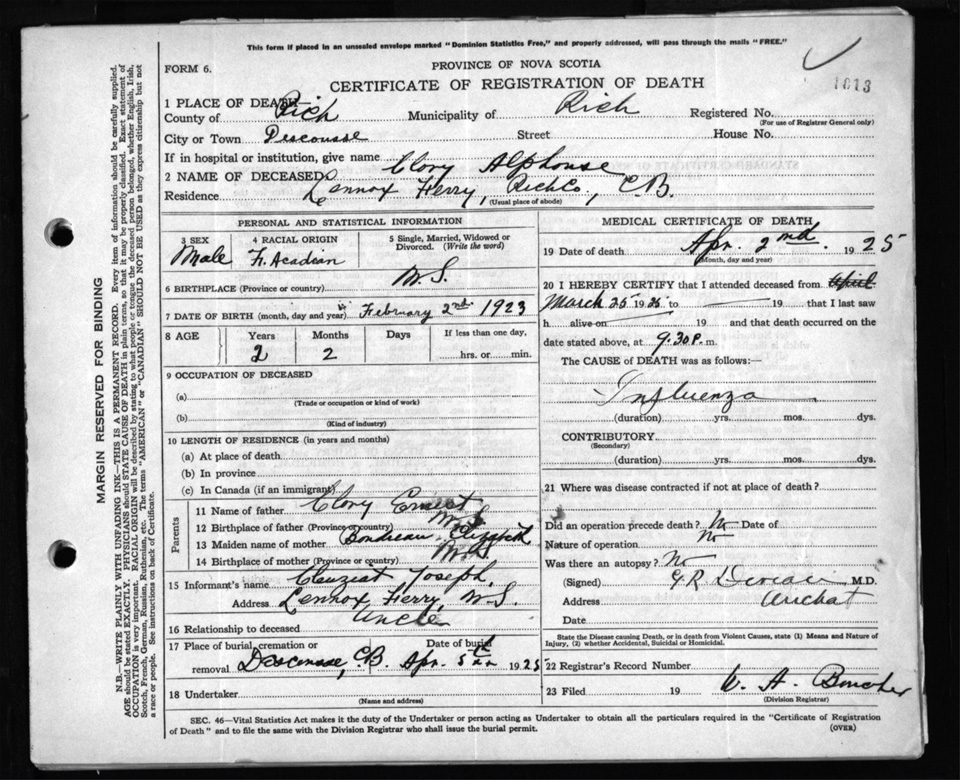 This form if placed in an unsealed envelope marked "Dominion Statistics Free," and properly addressed, will pass through the mails "FREE."
FORM 6.
PROVINCE OF NOVA SCOTIA
CERTIFICATE OF REGISTRATION OF DEATH
1613
1 PLACE OF DEATH—
County of Rich Municipality of Rich Registered No.
(For use of Registrar General only)
City or Town Descousse Street House No.
If in hospital or institution, give name
2 NAME OF DECEASED Clory Alphonse
Residence Lennox Ferry, Rich Co, C.B.
(Usual place of abode)
PERSONAL AND STATISTICAL INFORMATION
3 SEX Male
4 RACIAL ORIGIN Fr. Acadian
5 Single, Married, Widowed or Divorced. (Write the word)
6 BIRTHPLACE (Province or country) N.S.
7 DATE OF BIRTH (month, day and year) February 2nd 1923
8 AGE Years Months Days If less than one day,
2 2 hrs. or min.
9 OCCUPATION OF DECEASED
(a)
(Trade or occupation or kind of work)
(b)
(Kind of industry)
10 LENGTH OF RESIDENCE (in years and months)
(a) At place of death
(b) In province
(c) In Canada (if an immigrant)
Parents
11 Name of father Clory Ernest
12 Birthplace of father (Province or country) N.S.
13 Maiden name of mother Boudreau, Elizabeth
14 Birthplace of mother (Province or country) N.S.
15 Informant's name Joseph,
Address Lennox Ferry, N.S.
16 Relationship to deceased Uncle
17 Place of burial, cremation or removal Descousse, C.B. Date of burial Apr. 5th 1925
18 Undertaker
(Name and address)
MEDICAL CERTIFICATE OF DEATH
19 Date of death Apr. 2nd. 1925
(Month, day and year)
20 I HEREBY CERTIFY that I attended deceased from April
March 25 1925 to 19 that I last saw
h alive on 19 and that death occurred on the
date stated above, at 9.30 P. m.
The CAUSE of DEATH was as follows:—
Influenza
(duration) yrs. mos. dys.
CONTRIBUTORY
(Secondary)
(duration) yrs. mos. dys.
21 Where was disease contracted if not at place of death?
Did an operation precede death? No Date of
Nature of operation No
Was there an autopsy? No
(Signed) G.R. Deveau M.D.
Address Arichat
Date
State the Disease causing Death, or in death from Violent Causes, state (1) Means and Nature of Injury, (2) whether Accidental, Suicidal or Homicidal.
22 Registrar's Record Number
23 Filed 19 W. A. Boucher
(Division Registrar)
SEC. 46—Vital Statistics Act makes it the duty of the Undertaker or person acting as Undertaker to obtain all the particulars required in the "Certificate of Registration
of Death" and to file the same with the Division Registrar who shall issue the burial permit.
(OVER)
MARGIN RESERVED FOR BINDING
N.B.—WRITE PLAINLY WITH UNFADING INK—THIS IS A PERMANENT RECORD. Every item of information should be carefully supplied.
AGE should be stated EXACTLY. PHYSICIANS should STATE CAUSE OF DEATH in plain terms, so that it may be properly classified. Exact statement of
OCCUPATION is very important. RACIAL ORIGIN will be described by stating to what people or tongue the deceased person belonged, whether English, Irish,
Scotch, French, German, Russian, Ruthenian, etc. The terms "AMERICAN" or "CANADIAN" SHOULD NOT BE USED as they express citizenship but not
a race or people. See instructions on back of Certificate.